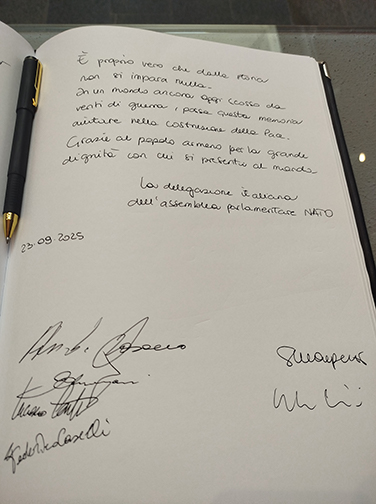 È proprio vero che dalla storia
non si impara nulla.
In un mondo ancora oggi scosso da
venti di guerra, possa questa memoria
aiutare nella costruzione della Pace.
Grazie al popolo armeno per la grande
dignità con chi si presenta al mondo
La delegazione italiana
dell'assemblea parlamentare NATO
23.09.2025